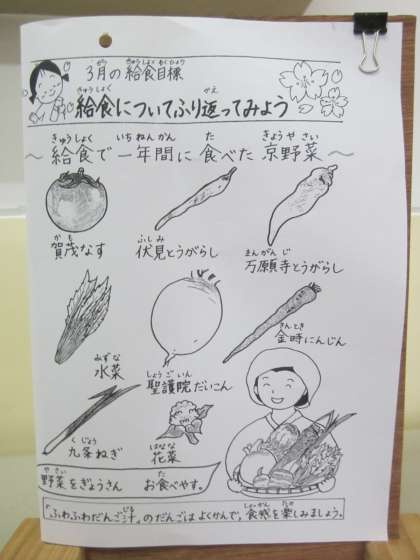 3月の給食目標
給食についてふり返ってみよう
～給食で一年間に食べた京野菜～
賀茂なす
伏見とうがらし
万願寺とうがらし
水菜
聖護院だいこん
金時にんじん
九条ねぎ
花菜
野菜をぎょうさん お食べやす。
「ふわふわだんご汁」のだんごはよくかんで、食感を楽しみましょう。